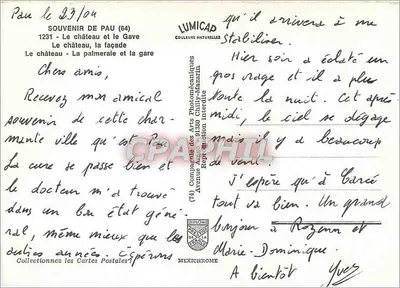 Pau le 23/04
SOUVENIR DE PAU (64)
1231 - Le château et le Gave
Le château, la façade
Le château - La palmeraie et la gare
Chers amis,
Recevez mon amical
souvenir de cette char-
mante ville qu'est Pau
La cure se passe bien et
le docteur m'a trouvé
dans un bon état géné-
ral, même mieux que les
autres années. Espérons
Collectionnez les Cartes Postales
LUMICAP
COULEURS NATURELLES
(76) Compagnie des Arts Photomécaniques
91380 Chilly-Mazarin
Reproduction interdite
MEXICHROME
qu'il arrivera à me
stabiliser.
Hier soir a éclaté un
gros orage et il a plu
toute la nuit. Cet après
midi, le ciel se dégage
mais il y a beaucoup
de vent.
J'espère qu'à Carcé
tout va bien. Un grand
bonjour à Rozenn et
Marie-Dominique.
A bientôt Yves
CPAPHIL